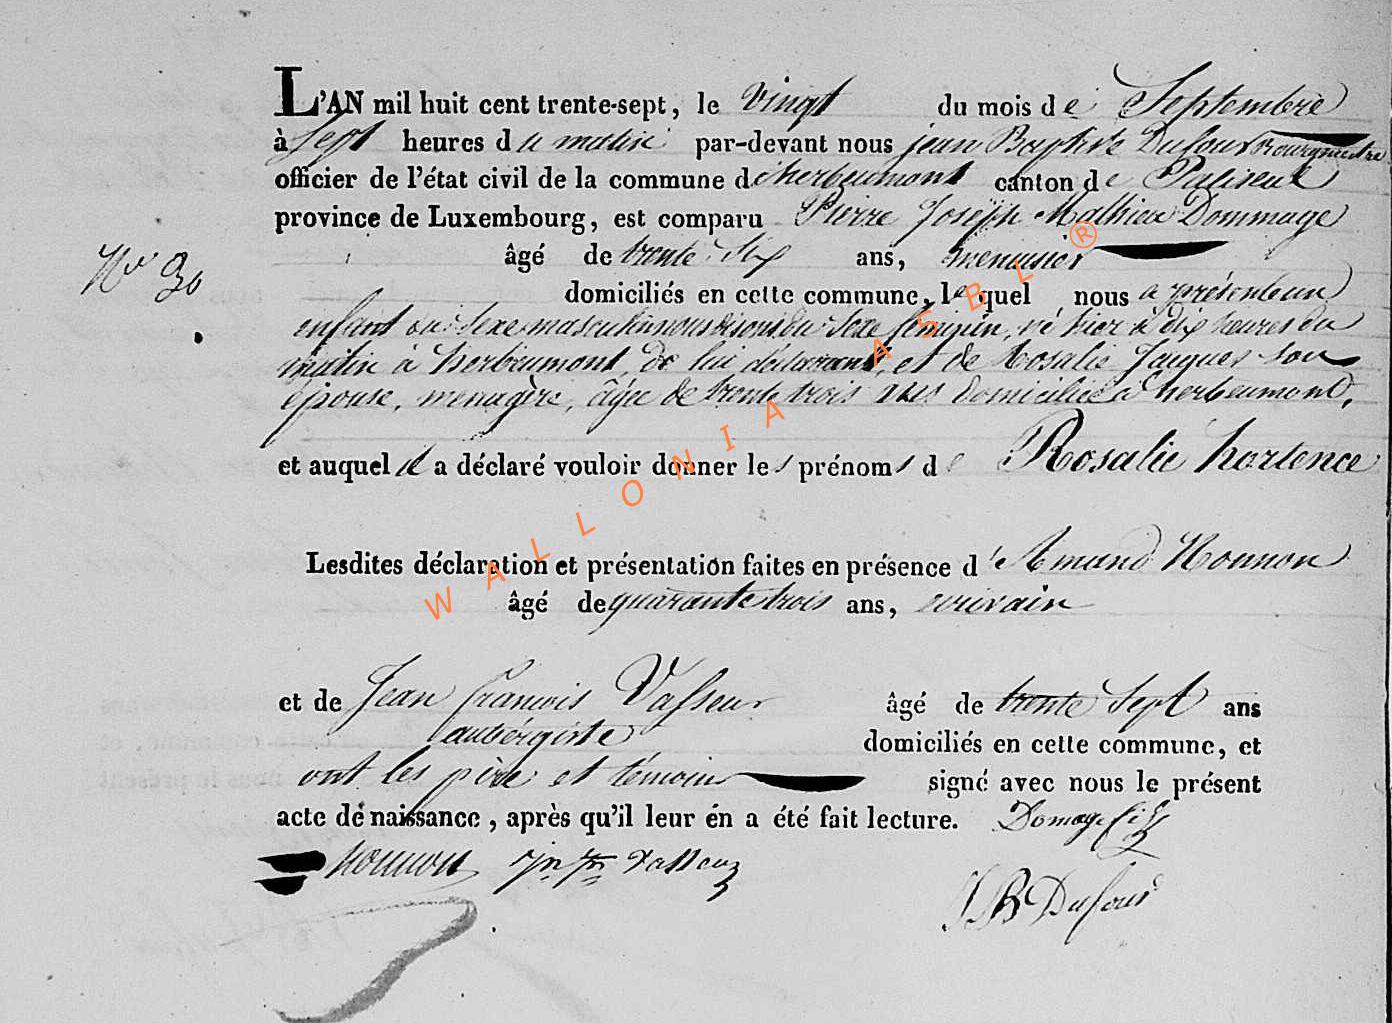 L'AN mil huit cent trente-sept, le vingt du mois de Septembre
à sept heures du matin par-devant nous jean Baptiste Dufour Bourgmestre
officier de l'état civil de la commune d'herbeumont canton de Paliseul
province de Luxembourg, est comparu Pierre Joseph Mathieu Dommage
âgé de trente six ans, menuisier
N° 30
domiciliés en cette commune, lequel nous a présenté un
enfant du Sexe masculin nous disons du Sexe féminin, né hier à dix heures du
matin à herbeumont, de lui déclarant, et de Rosalie Jaques son
épouse, menagère, âgée de trente trois ans domiciliée à herbeumont,
et auquel il a déclaré vouloir donner les prénoms de Rosalie hortence
Lesdites déclaration et présentation faites en présence d'Amand Nonnon
âgé de quarante trois ans, écrivain
et de Jean françois Vasseur âgé de trente Sept ans
aubergiste domiciliés en cette commune, et
ont les père et témoins signé avec nous le présent
acte de naissance, après qu'il leur en a été fait lecture. Domage
Nonnon Vasseur
JB Dufour
WALLONIA ASBL ®